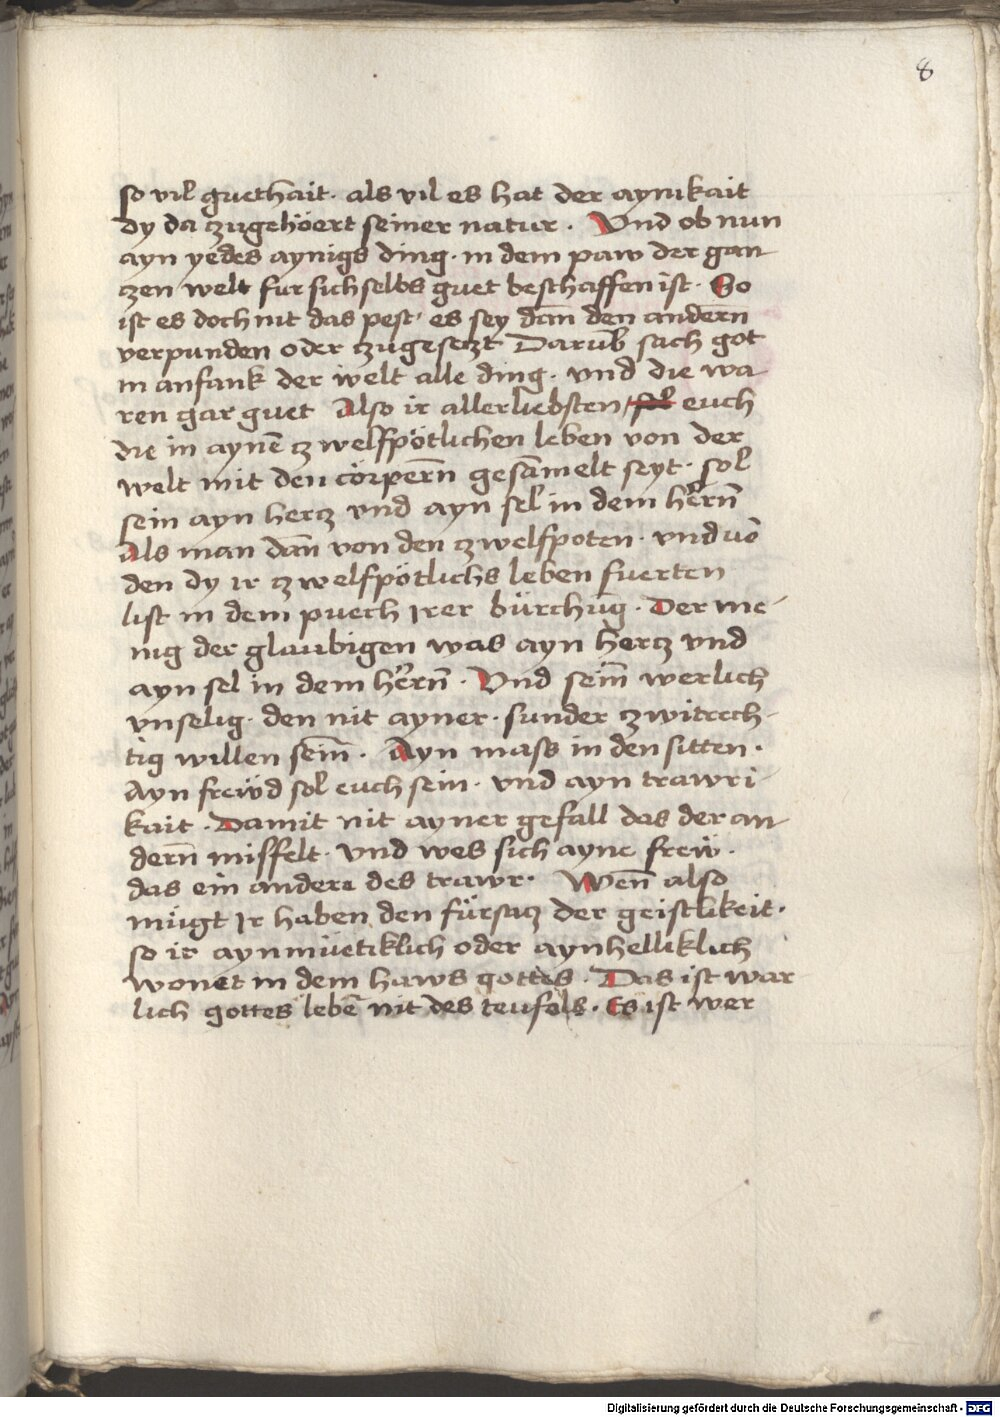 8
so vil guethait · als vil es hat der aynikait
dy da zugehöert seiner natur · Vnd ob nun
ayn yedes aynigs ding · in dem paw der gan
czen welt fur sich selbs guet beschaffen ist · So
ist es doch nit das pest · es sey dañ den anderñ
verpunden oder zugeseczt Darub̄ sach got
in anfank der welt alle ding · vnd die wa
ren gar guet Also ir allerliebsten euch
die in aynē zwelfpötlichen leben von der
welt mit den cörperñ gesāmelt seyt · sol
sein ayn hercz vnd ayn sel in dem herrñ
Als man dañ von den zwelfpoten · vnd vō
den dy ir zwelfpötlichs leben fuerten
list in dem puech irer bürchūg · Der me-
nig der glaubigen was ayn hercz vnd
ayn sel in dem herrñ · Vnd seiñ werlich
vnselig · den nit ayner · sunder zwitrech-
tig willen seiñ · Ayn mass in den sitten ·
Ayn frewd sol euch sein · vnd ayn trawri-
kait · Damit nit ayner gefall das der an-
derñ missfelt · vnd wes sich ayne frew ·
das ein andere des trawr · Weñ also
mügt ir haben den fürsacz der geistlikeit ·
so ir aynmüetiklich oder aynhelliklich
wonet in dem haws gottes · Das ist war
lich gottes lebē nit des teufels · Es ist wer
Digitalisierung gefördert durch die Deutsche Forschungsgemeinschaft - DFG